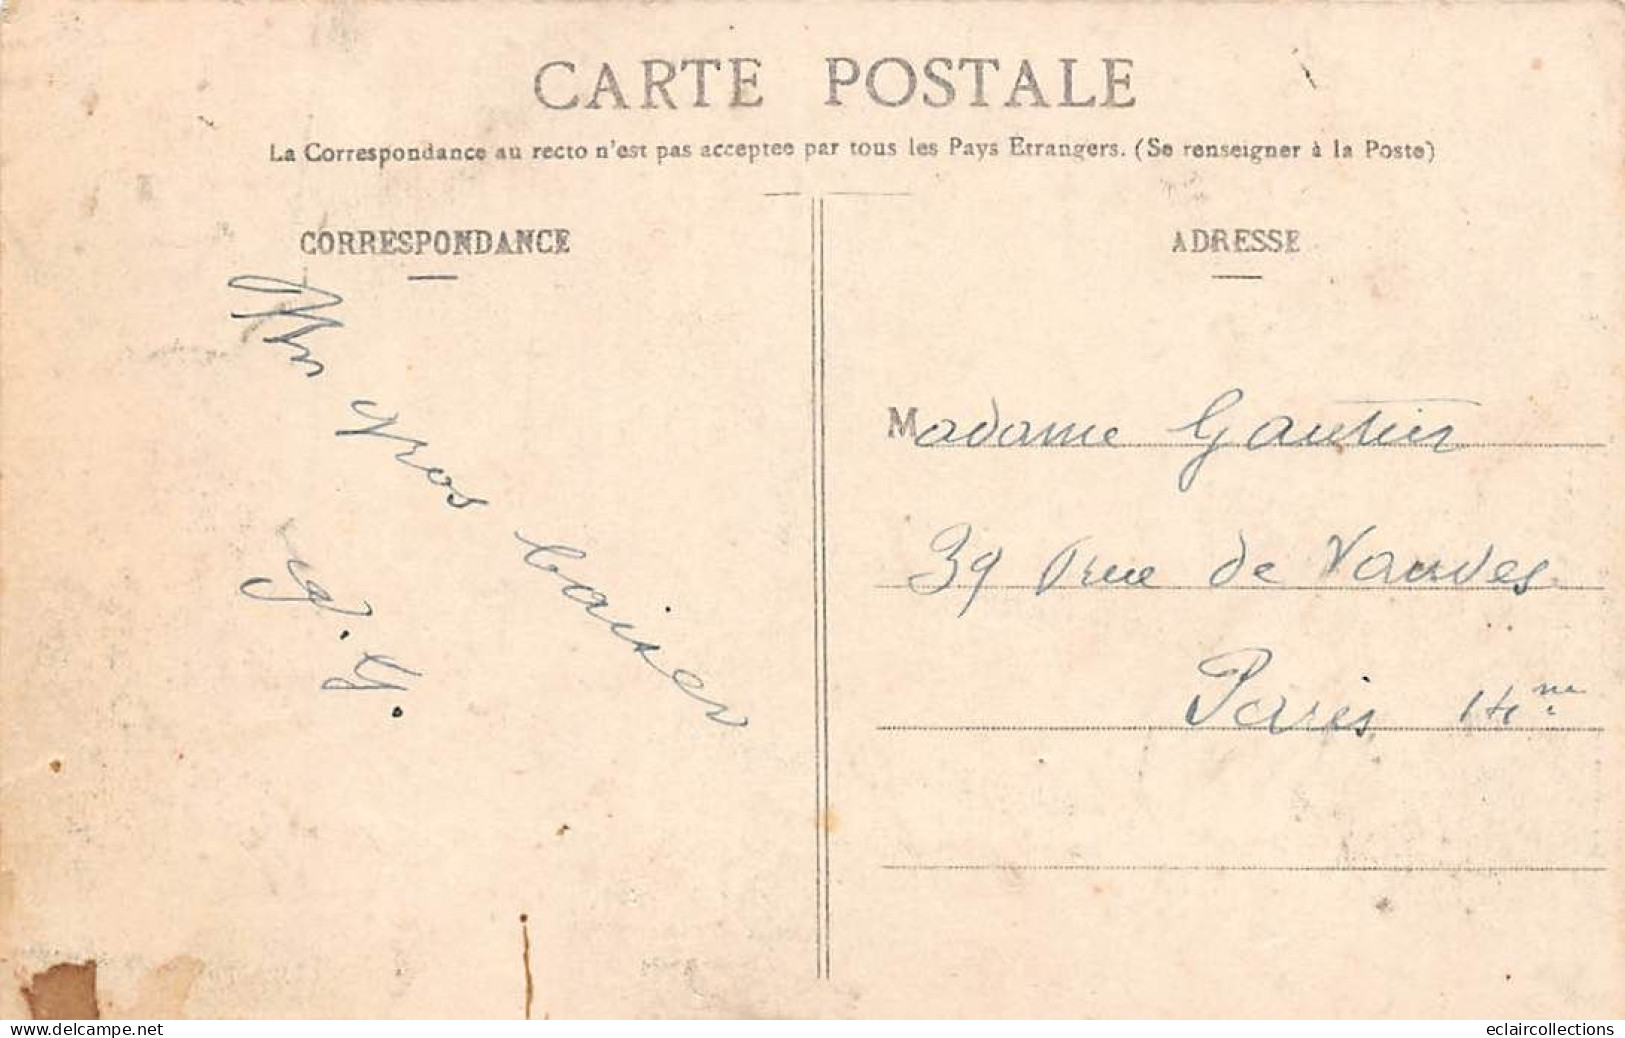 CARTE POSTALE
La Correspondance au recto n'est pas acceptee par tous les Pays Etrangers. (Se renseigner à la Poste)
CORRESPONDANCE
Un gros baiser
G.
ADRESSE
Madame Gautier
39 rue de Vanves
Paris 14me
www.delcampe.net
eclaircollections